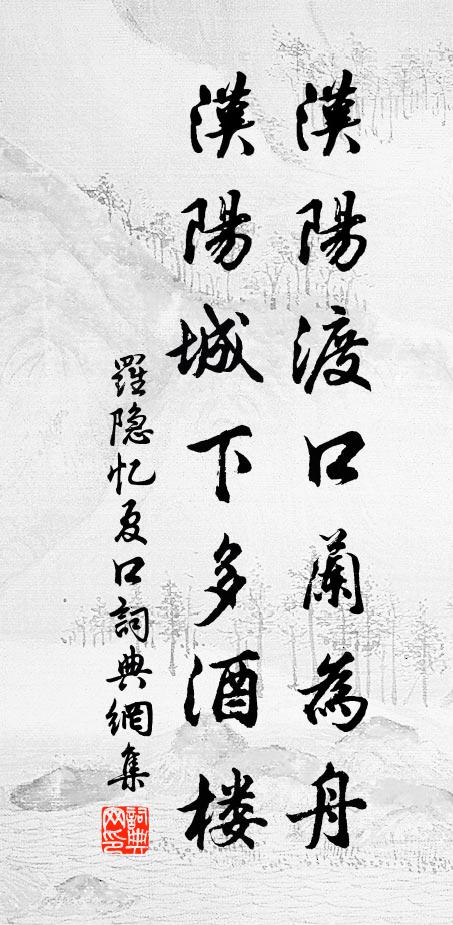 漢陽渡口蘭為舟
漢陽城下多酒楼
羅隐忆夏口詞典網集
詞典網印